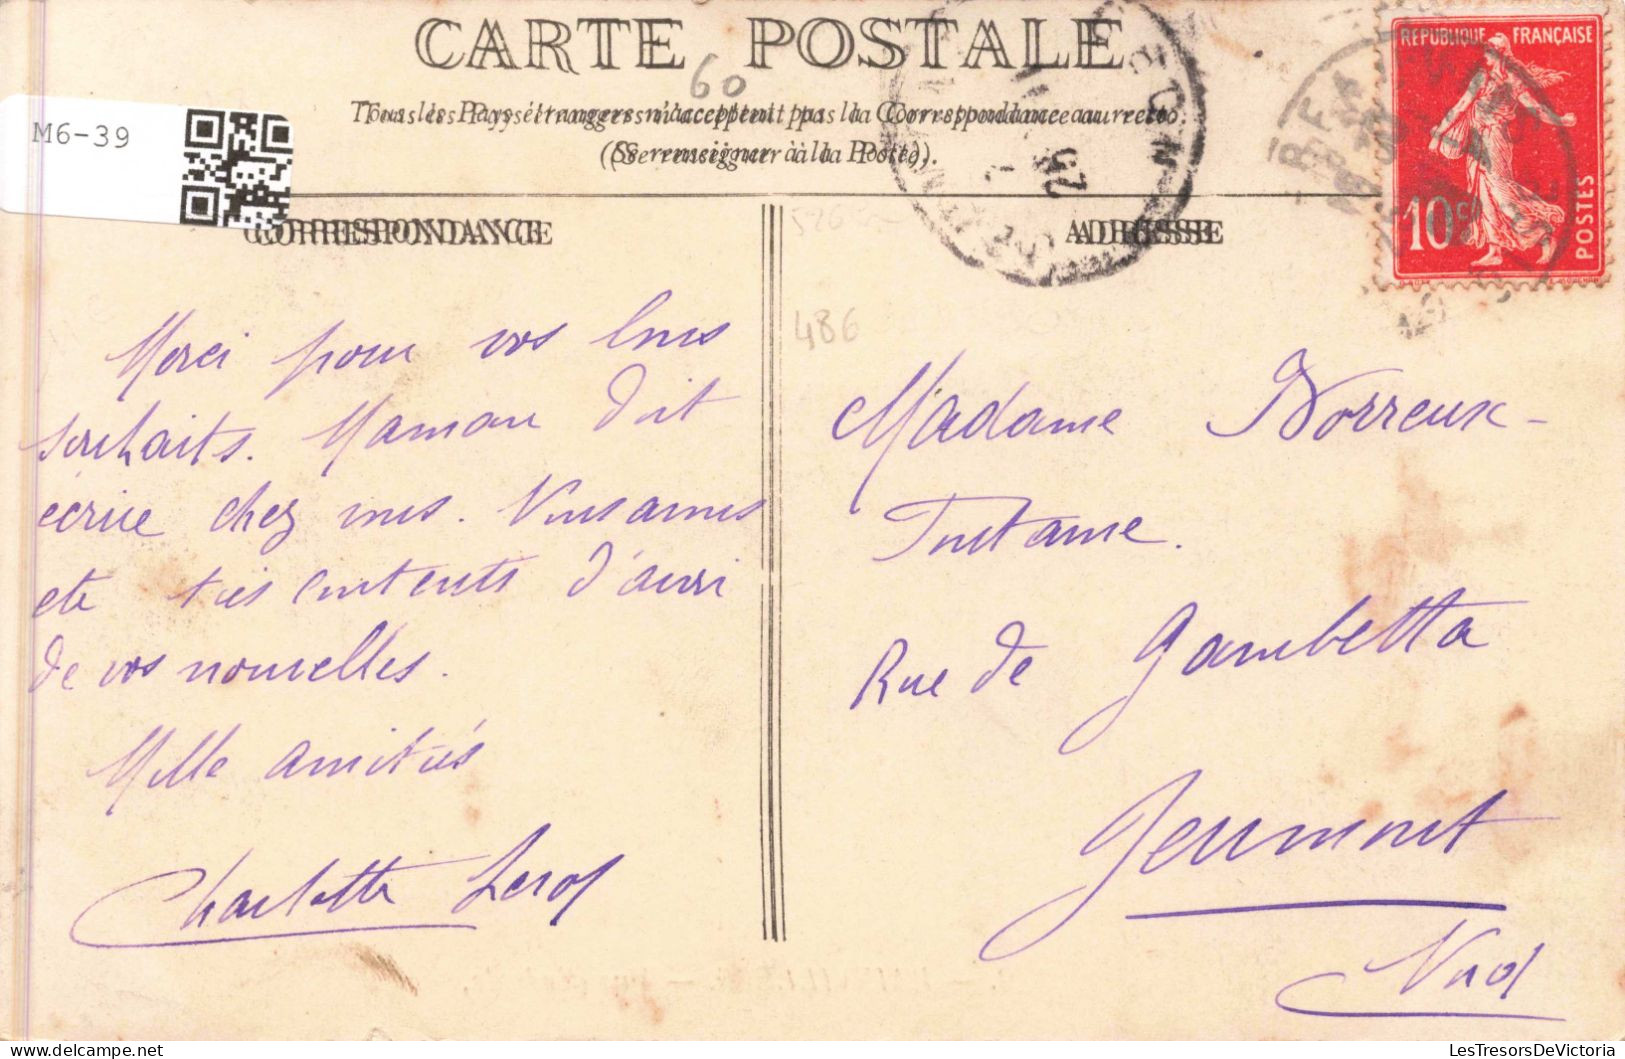 CARTE POSTALE
60
Tous les Pays étrangers n'acceptent pas la Correspondance au recto.
(Se renseigner à la Poste).
M6-39
CORRESPONDANCE
ADRESSE
RÉPUBLIQUE FRANÇAISE
10c
POSTES
486
Merci pour vos bons
souhaits. Maman doit
écrire chez vous. Nous avons
été très contents d'avoir
de vos nouvelles.
Mille amitiés
Charlotte Leroy
Madame Dorreux-
Fontaine.
Rue de Gambetta
Jeumont
Nord
LesTresorsDeVictoria